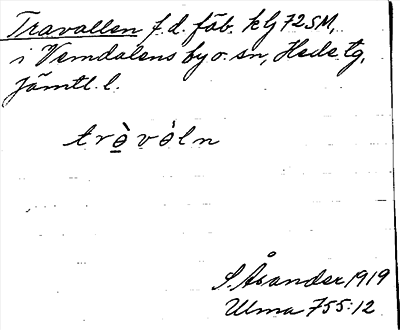 Travallen f.d. fäb. klg 72SM,
i Vemdalens by o. sn, Hede tg,
Jämtl. l.
trə̀və̀ln
S. Åsander 1919
Ulma 755:12